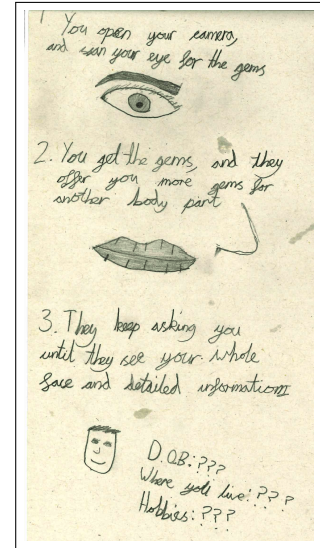 1.
You open your camera,
and scan your eye for the gems
2. You get the gems, and they
offer you more gems for
another body part
3. They keep asking you
until they see your whole
face and detailed information
D.OB:???
Where you live:???
Hobbies:???